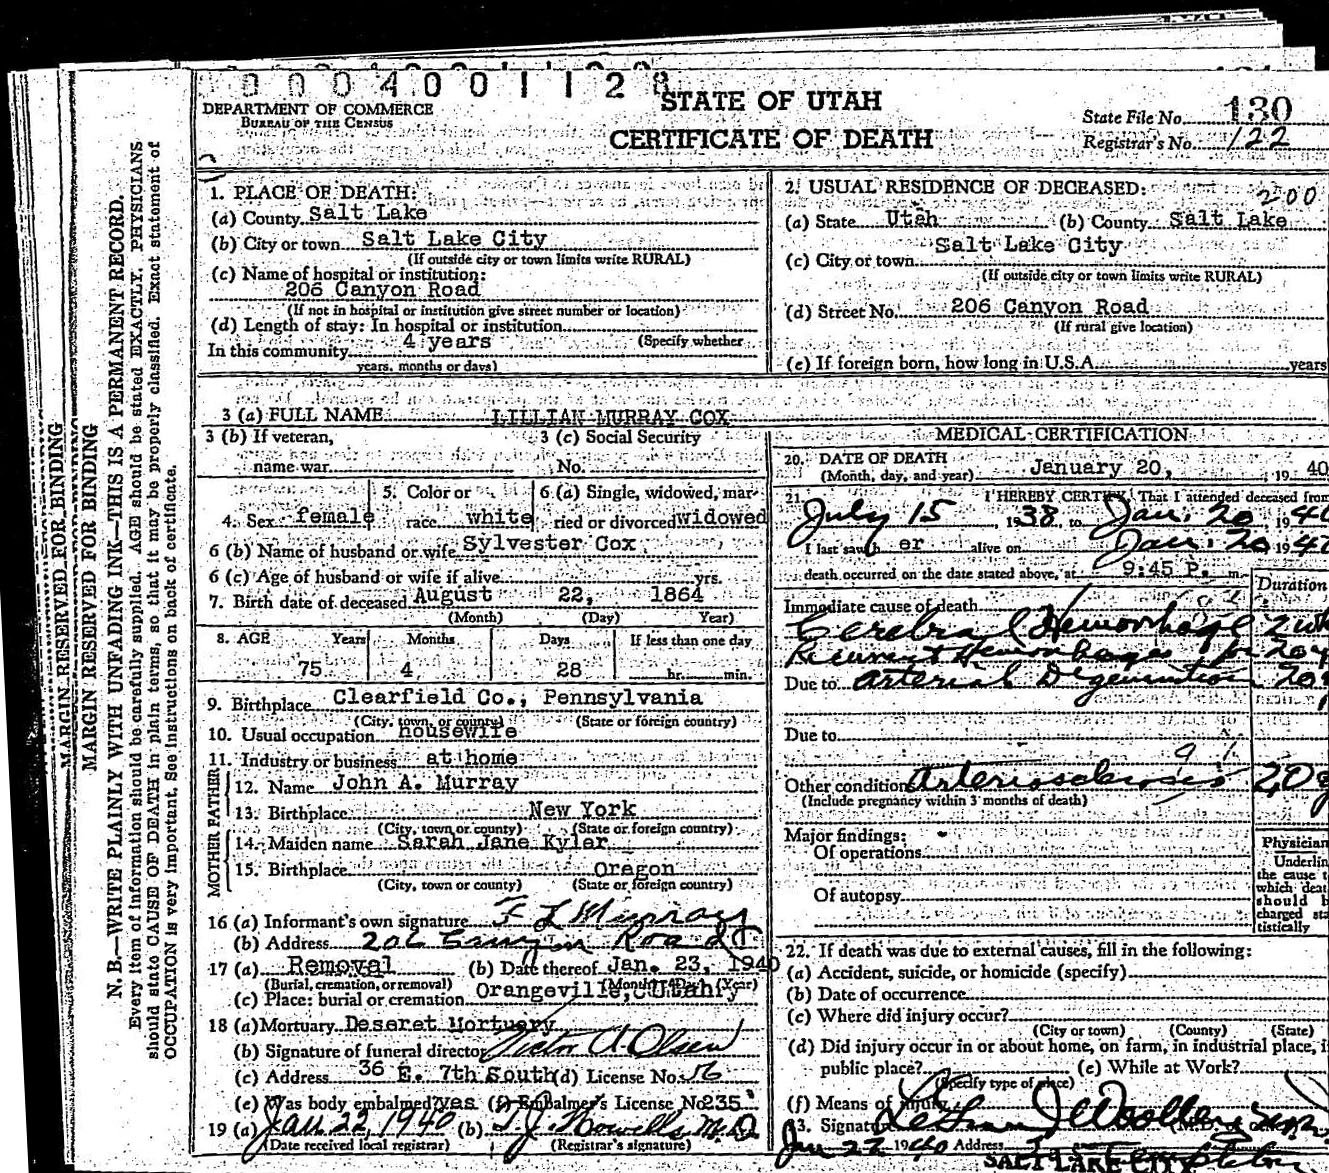 0 0 0 4 0 0 1 1 2 8
DEPARTMENT OF COMMERCE
BUREAU OF THE CENSUS
STATE OF UTAH
CERTIFICATE OF DEATH
State File No. 130
Registrar's No. 122
MARGIN RESERVED FOR BINDING
MARGIN RESERVED FOR BINDING
N. B.—WRITE PLAINLY WITH UNFADING INK—THIS IS A PERMANENT RECORD.
Every item of information should be carefully supplied. AGE should be stated EXACTLY. PHYSICIANS
should state CAUSE OF DEATH in plain terms, so that it may be properly classified. Exact statement of
OCCUPATION is very important. See instructions on back of certificate.
1. PLACE OF DEATH:
(a) County Salt Lake
(b) City or town Salt Lake City
(If outside city or town limits write RURAL)
(c) Name of hospital or institution:
206 Canyon Road
(If not in hospital or institution give street number or location)
(d) Length of stay: In hospital or institution
(Specify whether
In this community 4 years
years, months or days)
2. USUAL RESIDENCE OF DECEASED:
200
(a) State Utah (b) County Salt Lake
(c) City or town Salt Lake City
(If outside city or town limits write RURAL)
(d) Street No. 206 Canyon Road
(If rural give location)
(e) If foreign born, how long in U.S.A. years
3 (a) FULL NAME LILLIAN MURRAY COX
3 (b) If veteran, name war
3 (c) Social Security No.
4. Sex female 5. Color or race white 6 (a) Single, widowed, married or divorced widowed
6 (b) Name of husband or wife Sylvester Cox
6 (c) Age of husband or wife if alive yrs.
7. Birth date of deceased August 22, 1864
(Month) (Day) Year)
8. AGE Years Months Days If less than one day
75 4 28 hr. min.
9. Birthplace Clearfield Co., Pennsylvania
(City, town, or county) (State or foreign country)
10. Usual occupation housewife
11. Industry or business at home
FATHER
12. Name John A. Murray
13. Birthplace New York
(City, town or county) (State or foreign country)
MOTHER
14. Maiden name Sarah Jane Kyler
15. Birthplace Oregon
(City, town or county) (State or foreign country)
16 (a) Informant's own signature F L Murray
(b) Address 206 Canyon Road
17 (a) Removal (b) Date thereof Jan. 23, 1940
(Burial, cremation, or removal) (Month) (Day) (Year)
(c) Place: burial or cremation Orangeville, Utah
18 (a) Mortuary Deseret Mortuary
(b) Signature of funeral director Victor A Olsen
(c) Address 36 E. 7th South (d) License No. 56
(e) Was body embalmed? yes (f) Embalmer's License No. 235
19 (a) Jan 22, 1940 (b) T. J. Howells M.D.
(Date received local registrar) (Registrar's signature)
MEDICAL CERTIFICATION
20. DATE OF DEATH
(Month, day, and year) January 20, 19 40
21. I HEREBY CERTIFY, That I attended deceased from
July 15, 1938, to Jan. 20 1940
I last saw her alive on Jan. 20 1940
death occurred on the date stated above, at 9:45 P. m.
Duration
Immediate cause of death
Cerebral Hemorrhage
Recurrent Hemorrhages
Due to Arterial Degeneration
Due to
Other conditions Arteriosclerosis
(Include pregnancy within 3 months of death)
Major findings:
Of operations
Of autopsy
Physician
Underlin
the cause t
which deat
should b
charged sta
tistically
22. If death was due to external causes, fill in the following:
(a) Accident, suicide, or homicide (specify)
(b) Date of occurrence
(c) Where did injury occur?
(City or town) (County) (State)
(d) Did injury occur in or about home, on farm, in industrial place, i
public place? (e) While at Work?
(Specify type of place)
(f) Means of injury
23. Signature
Jan 22 1940 Address
SALT LAKE CITY